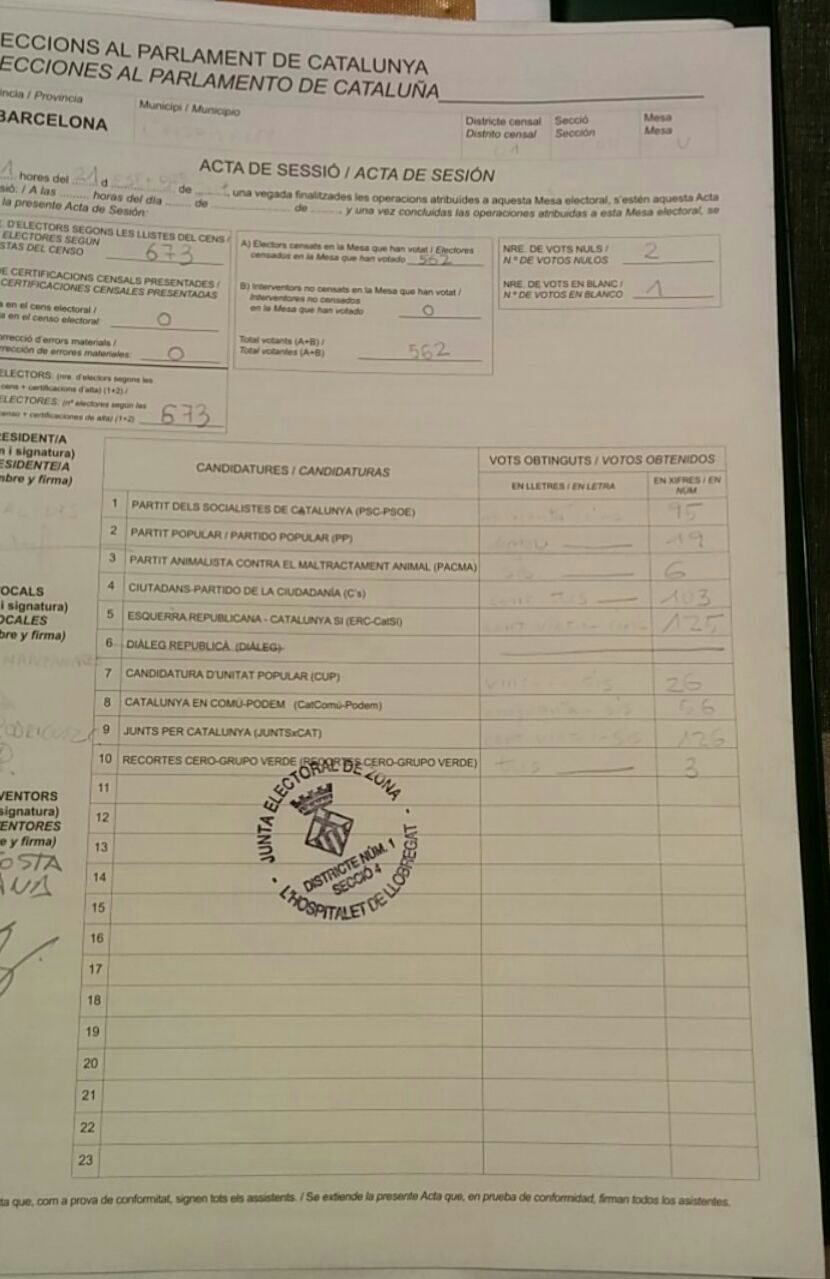 ECCIONS AL PARLAMENT DE CATALUNYA
ECCIONES AL PARLAMENTO DE CATALUÑA
íncia / Provincia
BARCELONA
Municipi / Municipio
Districte censal
Distrito censal
Secció
Sección
Mesa
Mesa
U
ACTA DE SESSIÓ / ACTA DE SESIÓN
hores del 21 d de , una vegada finalitzades les operacions atribuïdes a aquesta Mesa electoral, s'estén aquesta Acta
sió: / A las horas del día de de , y una vez concluidas las operaciones atribuidas a esta Mesa electoral, se
la presente Acta de Sesión:
. D'ELECTORS SEGONS LES LLISTES DEL CENS /
ELECTORES SEGÚN
STAS DEL CENSO 673
E CERTIFICACIONS CENSALS PRESENTADES /
CERTIFICACIONES CENSALES PRESENTADAS
a en el cens electoral /
a en el censo electoral: 0
rrecció d'errors materials /
rrección de errores materiales: 0
ELECTORS: (nre. d'electors segons les
cens + certificacions d'alta) (1+2) /
ELECTORES: (nº electores según las
censo + certificaciones de alta) (1+2) 673
A) Electors censats en la Mesa que han votat / Electores
censados en la Mesa que han votado 562
B) Interventors no censats en la Mesa que han votat /
Interventores no censados
en la Mesa que han votado 0
Total votants (A+B) /
Total votantes (A+B) 562
NRE. DE VOTS NULS /
N.º DE VOTOS NULOS 2
NRE. DE VOTS EN BLANC /
N.º DE VOTOS EN BLANCO 1
RESIDENT/A
m i signatura)
ESIDENTE/A
mbre y firma)
OCALS
i signatura)
OCALES
bre y firma)
VENTORS
signatura)
VENTORES
e y firma)
OSTA
CANDIDATURES / CANDIDATURAS
VOTS OBTINGUTS / VOTOS OBTENIDOS
EN LLETRES / EN LETRA
EN XIFRES / EN
NÚM
1 PARTIT DELS SOCIALISTES DE CATALUNYA (PSC-PSOE) 95
2 PARTIT POPULAR / PARTIDO POPULAR (PP) 19
3 PARTIT ANIMALISTA CONTRA EL MALTRACTAMENT ANIMAL (PACMA) sis 6
4 CIUTADANS-PARTIDO DE LA CIUDADANÍA (C's) cent tres 103
5 ESQUERRA REPUBLICANA - CATALUNYA SI (ERC-CatSI) 125
6 DIÀLEG REPUBLICÀ (DIÀLEG)
7 CANDIDATURA D'UNITAT POPULAR (CUP) vint-i-sis 26
8 CATALUNYA EN COMÚ-PODEM (CatComú-Podem) 56
9 JUNTS PER CATALUNYA (JUNTSxCAT) cent vint-i-sis 126
10 RECORTES CERO-GRUPO VERDE (RECORTES CERO-GRUPO VERDE) tres 3
11
12
13
14
15
16
17
18
19
20
21
22
23
JUNTA ELECTORAL DE ZONA
DISTRICTE NÚM. 1
SECCIÓ 4
L'HOSPITALET DE LLOBREGAT
ta que, com a prova de conformitat, signen tots els assistents. / Se extiende la presente Acta que, en prueba de conformidad, firman todos los asistentes.